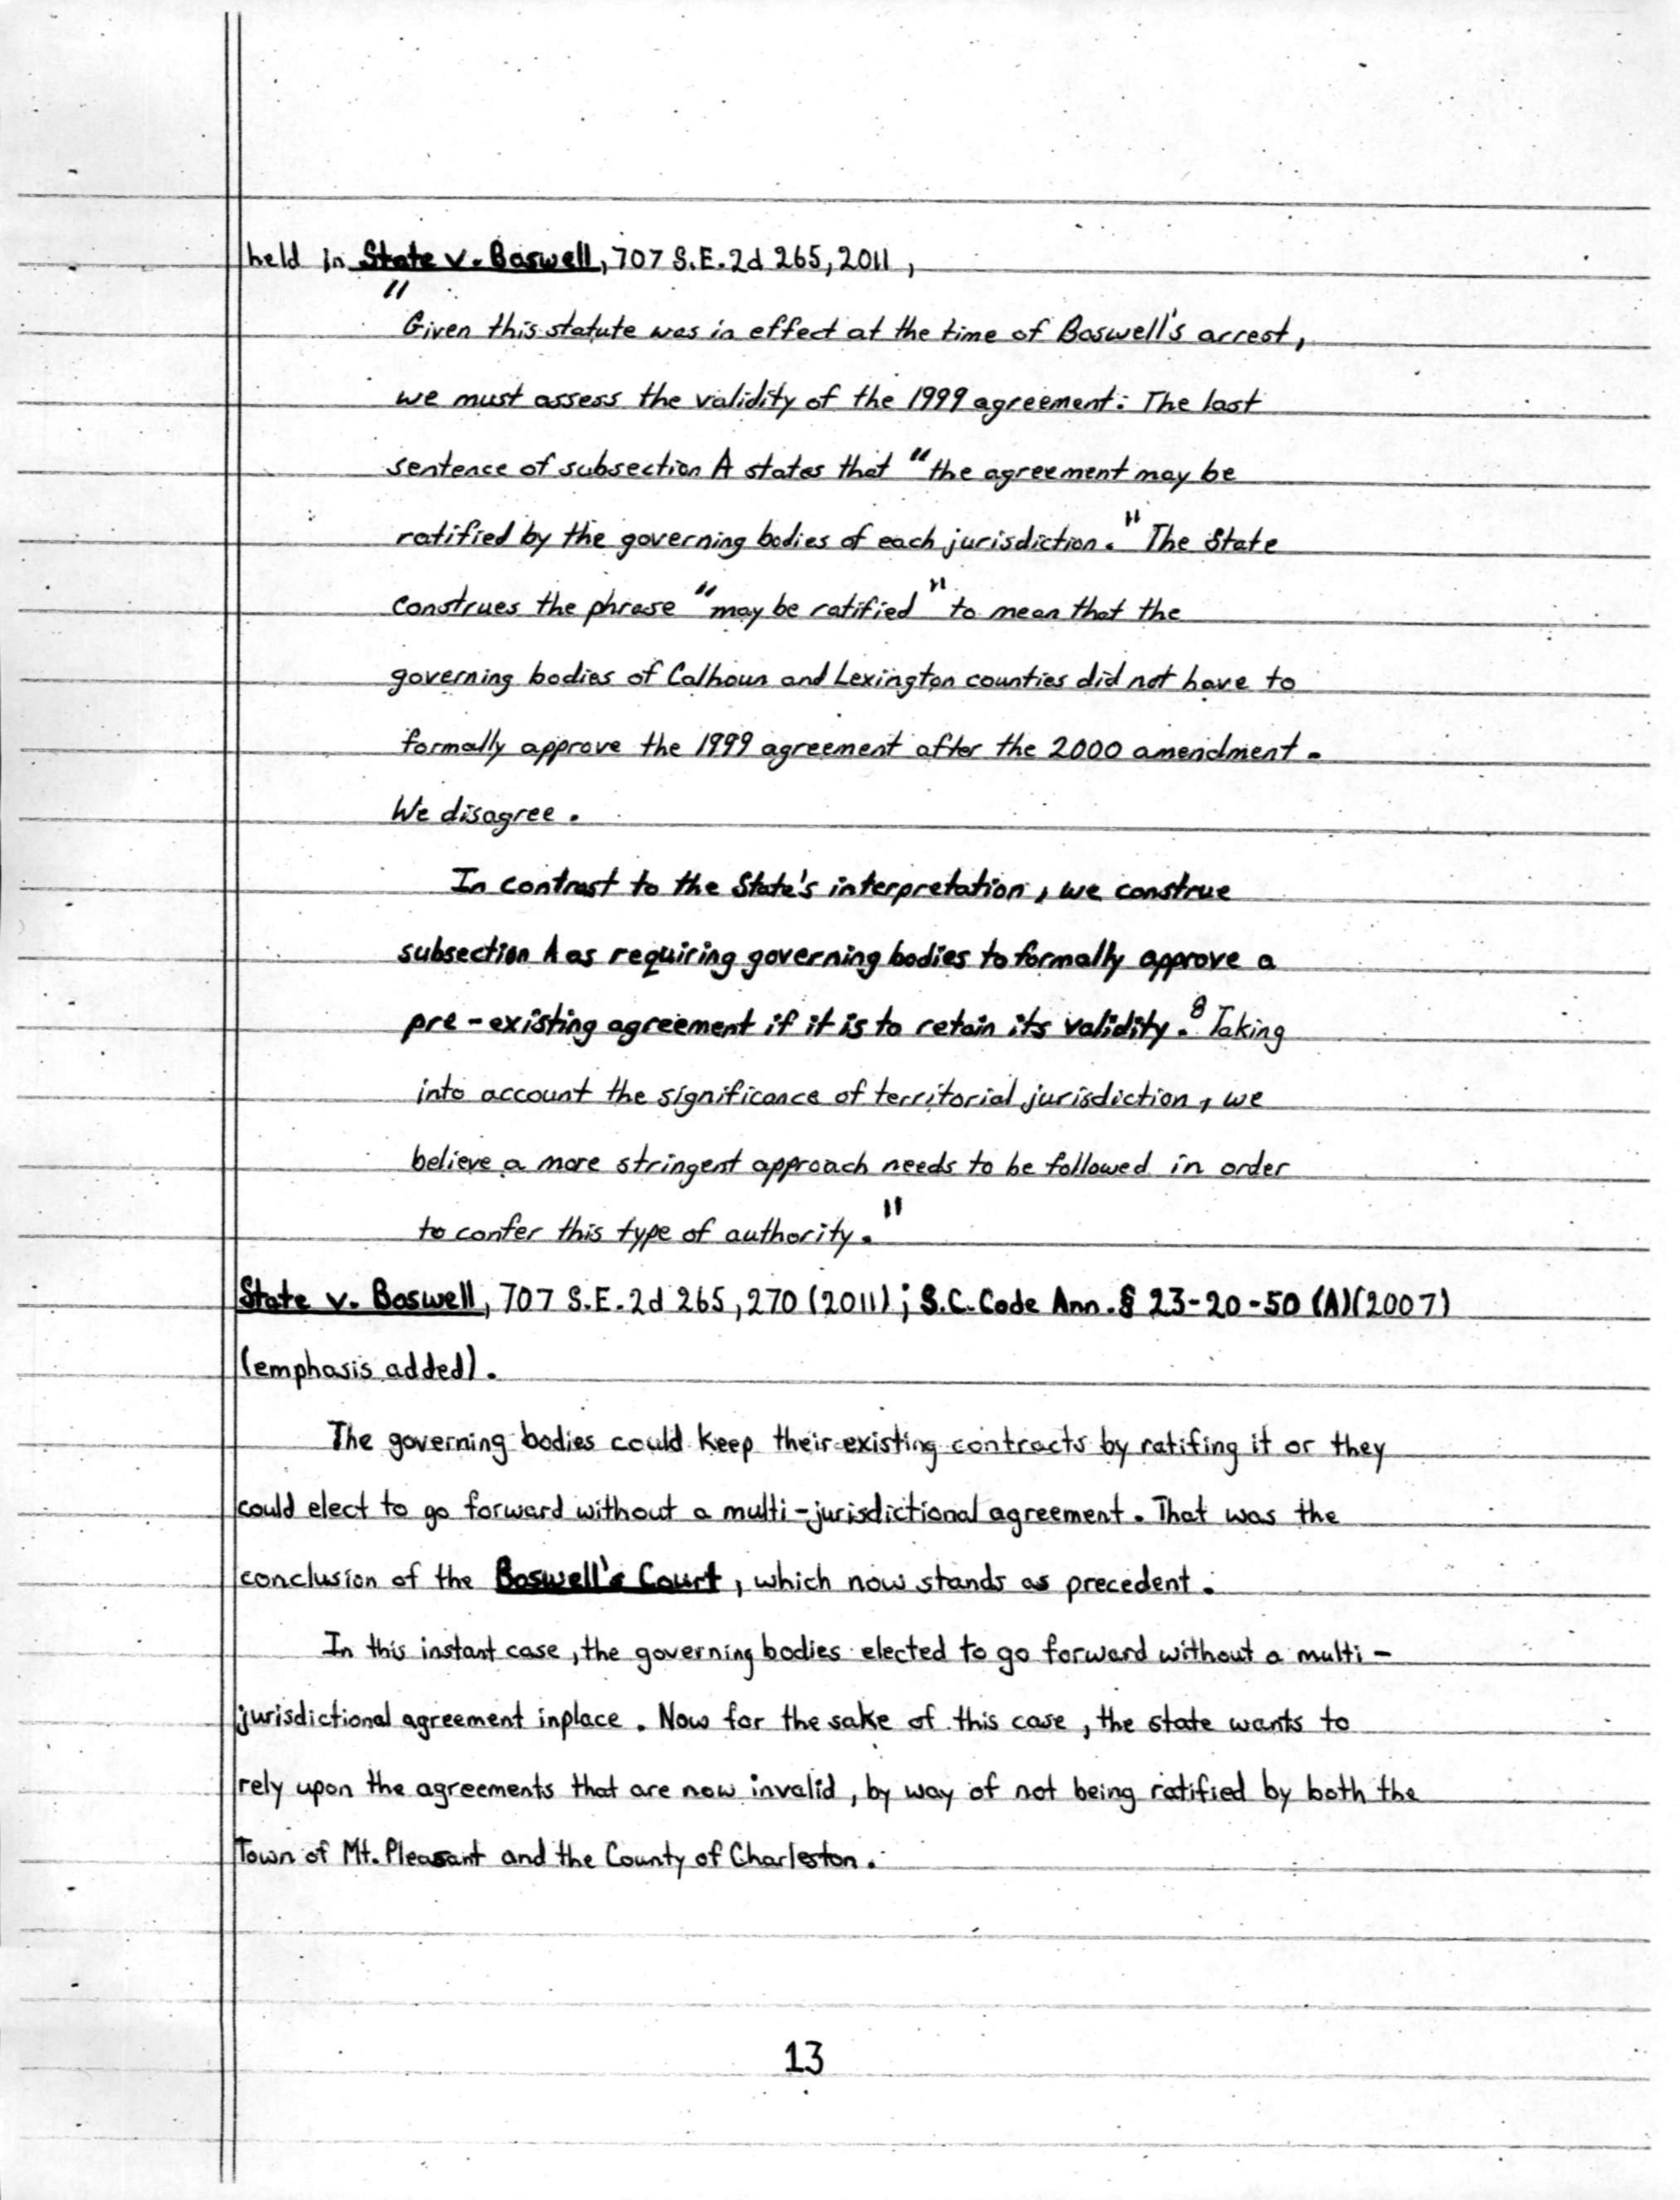 held in State v. Boswell, 707 S.E.2d 265, 2011,
"Given this statute was in effect at the time of Boswell's arrest,
we must assess the validity of the 1999 agreement: The last
sentence of subsection A states that "the agreement may be
ratified by the governing bodies of each jurisdiction." The State
construes the phrase "may be ratified" to mean that the
governing bodies of Calhoun and Lexington counties did not have to
formally approve the 1999 agreement after the 2000 amendment.
We disagree.
In contrast to the State's interpretation, we construe
subsection A as requiring governing bodies to formally approve a
pre-existing agreement if it is to retain its validity.8 Taking
into account the significance of territorial jurisdiction, we
believe a more stringent approach needs to be followed in order
to confer this type of authority."
State v. Boswell, 707 S.E.2d 265, 270 (2011); S.C. Code Ann. § 23-20-50 (A)(2007)
(emphasis added).
The governing bodies could keep their existing contracts by ratifing it or they
could elect to go forward without a multi-jurisdictional agreement. That was the
conclusion of the Boswell's Court, which now stands as precedent.
In this instant case, the governing bodies elected to go forward without a multi-
jurisdictional agreement inplace. Now for the sake of this case, the state wants to
rely upon the agreements that are now invalid, by way of not being ratified by both the
Town of Mt. Pleasant and the County of Charleston.
13